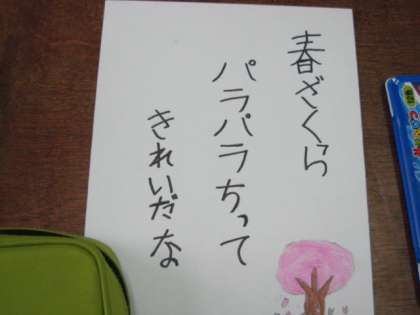 春ざくら
パラパラちって
きれいだな